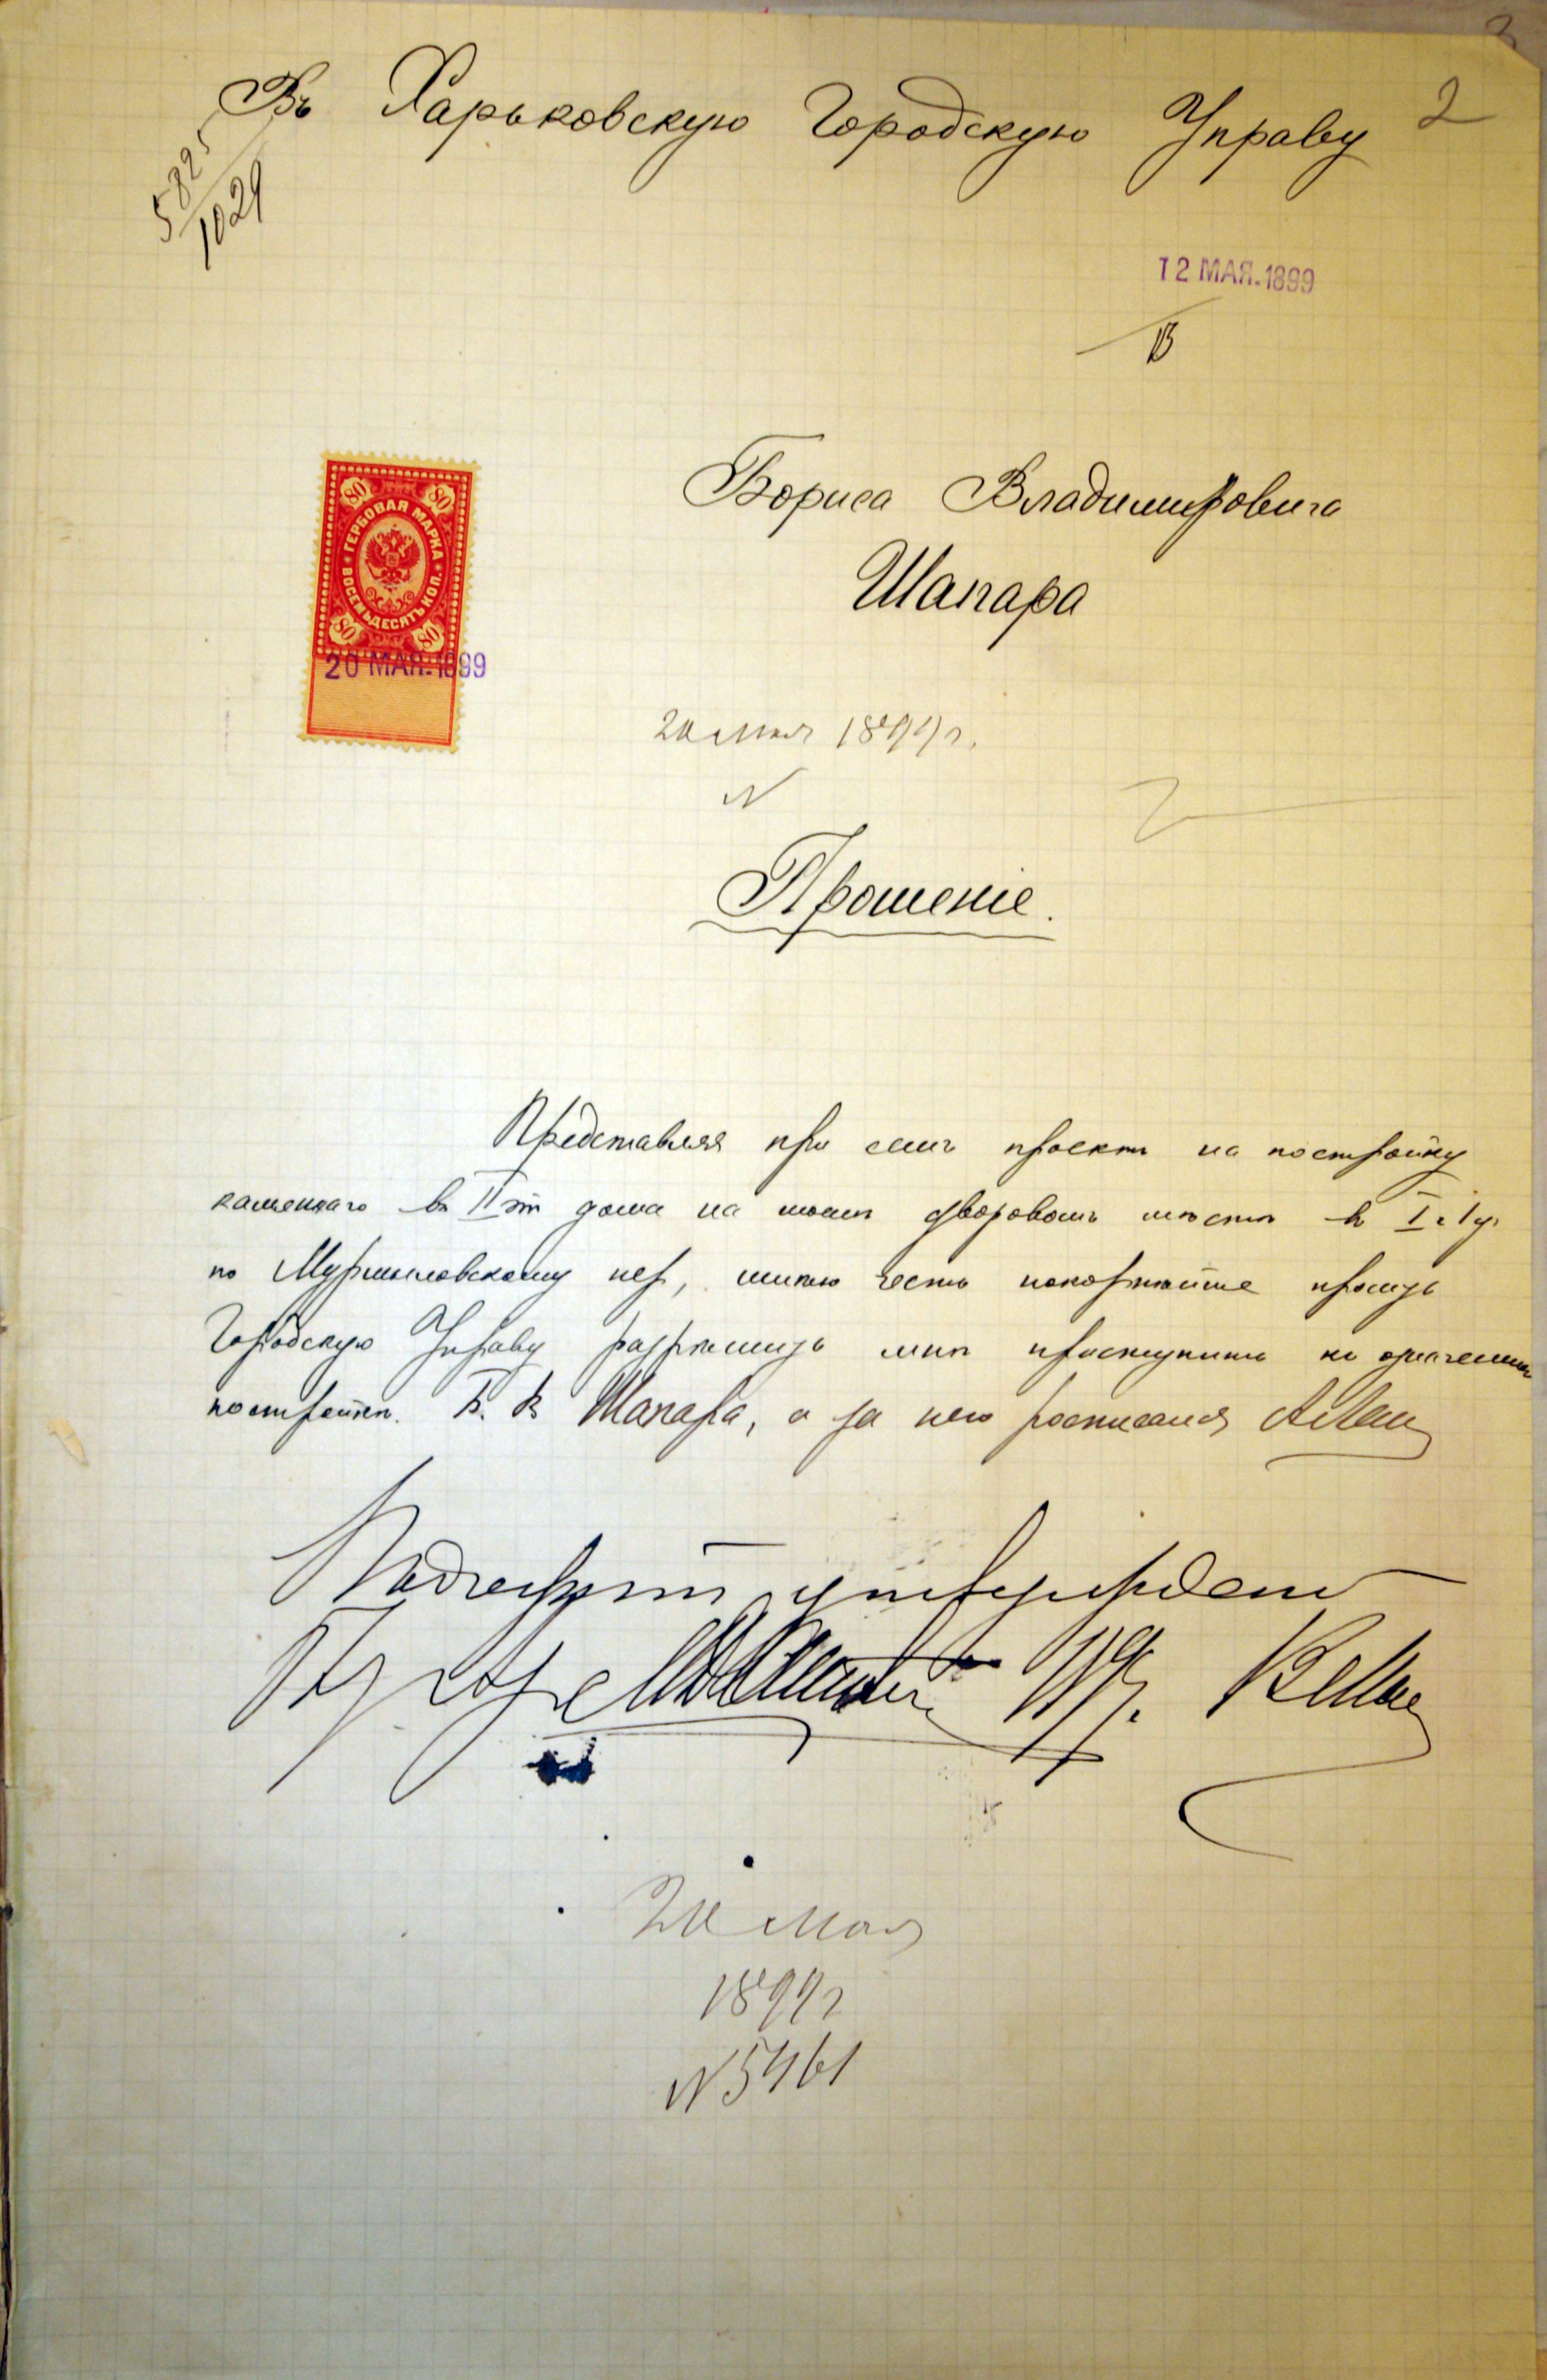 2
Въ Харьковскую Городскую Управу
5825
1029
12 МАЯ.1899
В
Бориса Владимировича
Шапара
80 80
ГЕРБОВАЯ МАРКА
ВОСЕМЬДЕСЯТЪ КОП.
80 80
20 МАЯ.1899
20 мая 1899 г.
N
Прошеніе.
Представляя при семъ проектъ на постройку
каменнаго въ II эт дома на моемъ дворовомъ мѣстѣ въ I ч. I уч
по пер, имѣю честь покорнѣйше просить
Городскую Управу разрѣшить мнѣ приступить къ означенной
постройкѣ. Б. В Шапара, а за него росписался
Подлежитъ утвержденію
20 мая
1899 г
N 5461